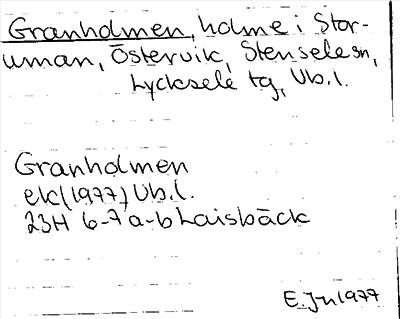 Granholmen, holme i Stor-
uman, Östervik, Stensele sn,
Lycksele tg, Vb.l.
Granholmen
ek(1977) Vb.l.
23H 6-7 a-b Laisbäck
E.Jn 1977